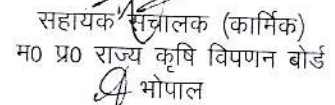 सहायक संचालक (कार्मिक)
म0 प्र0 राज्य कृषि विपणन बोर्ड
भोपाल